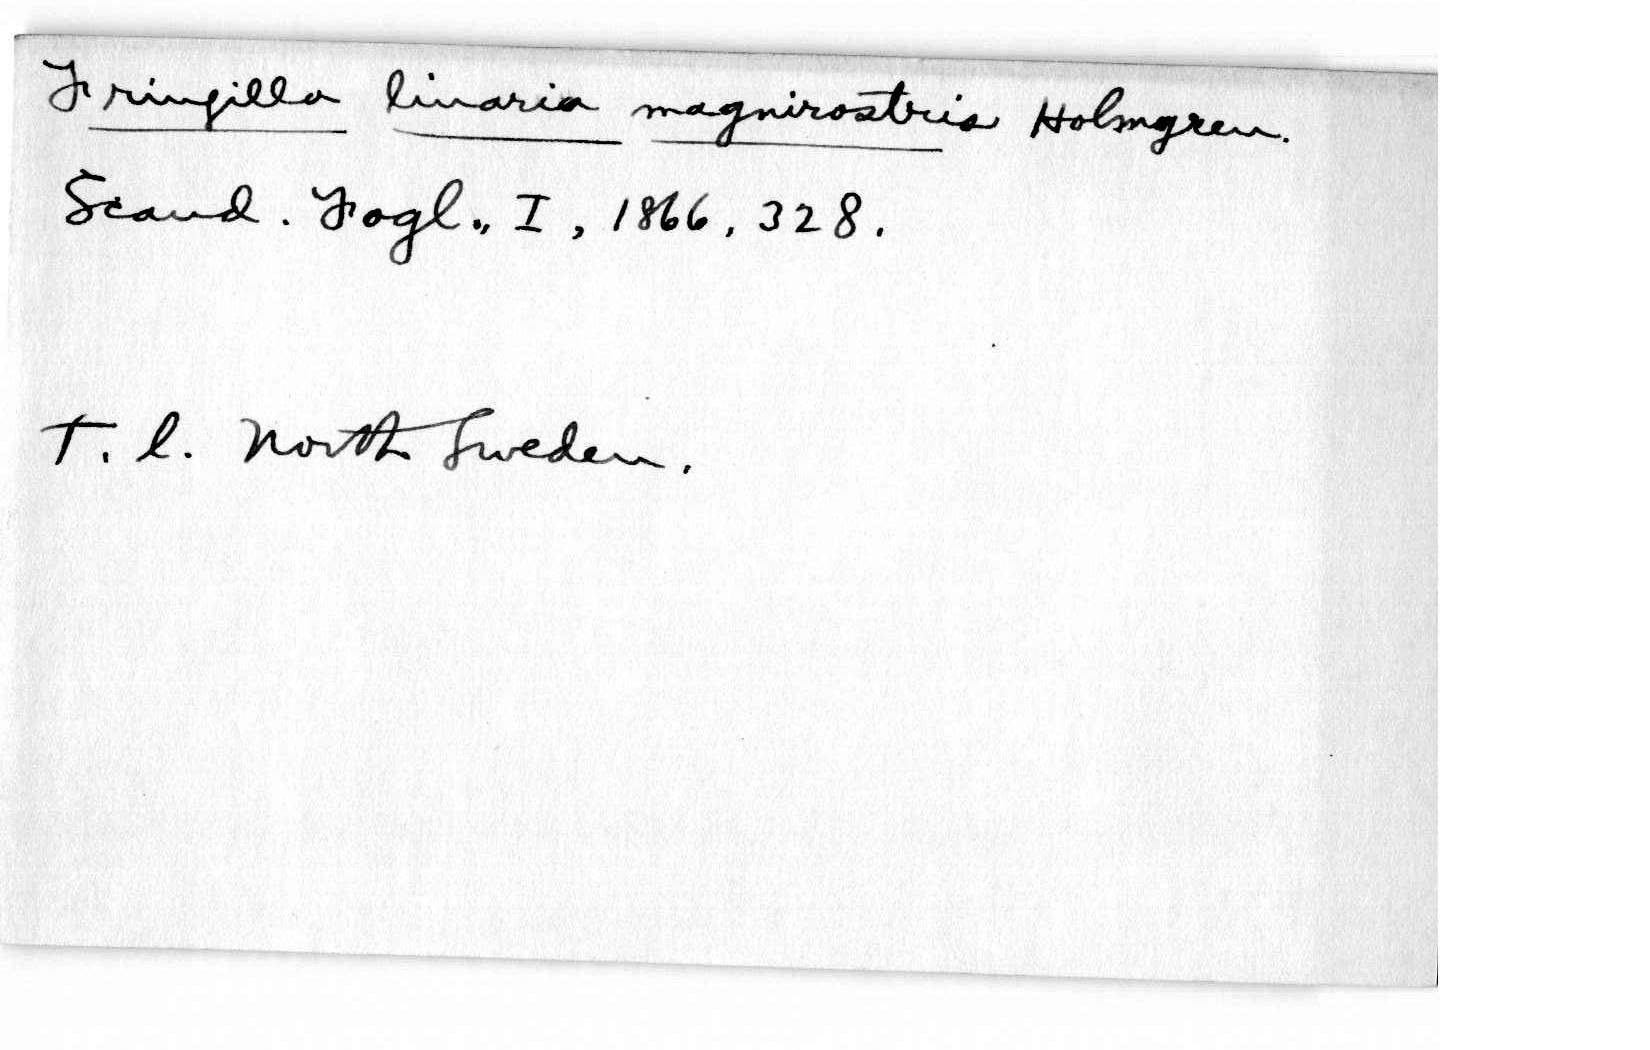 Fringilla linaria magnirostris Holmgren.
Scand. Fogl., I, 1866, 328.
T. l. North Sweden.